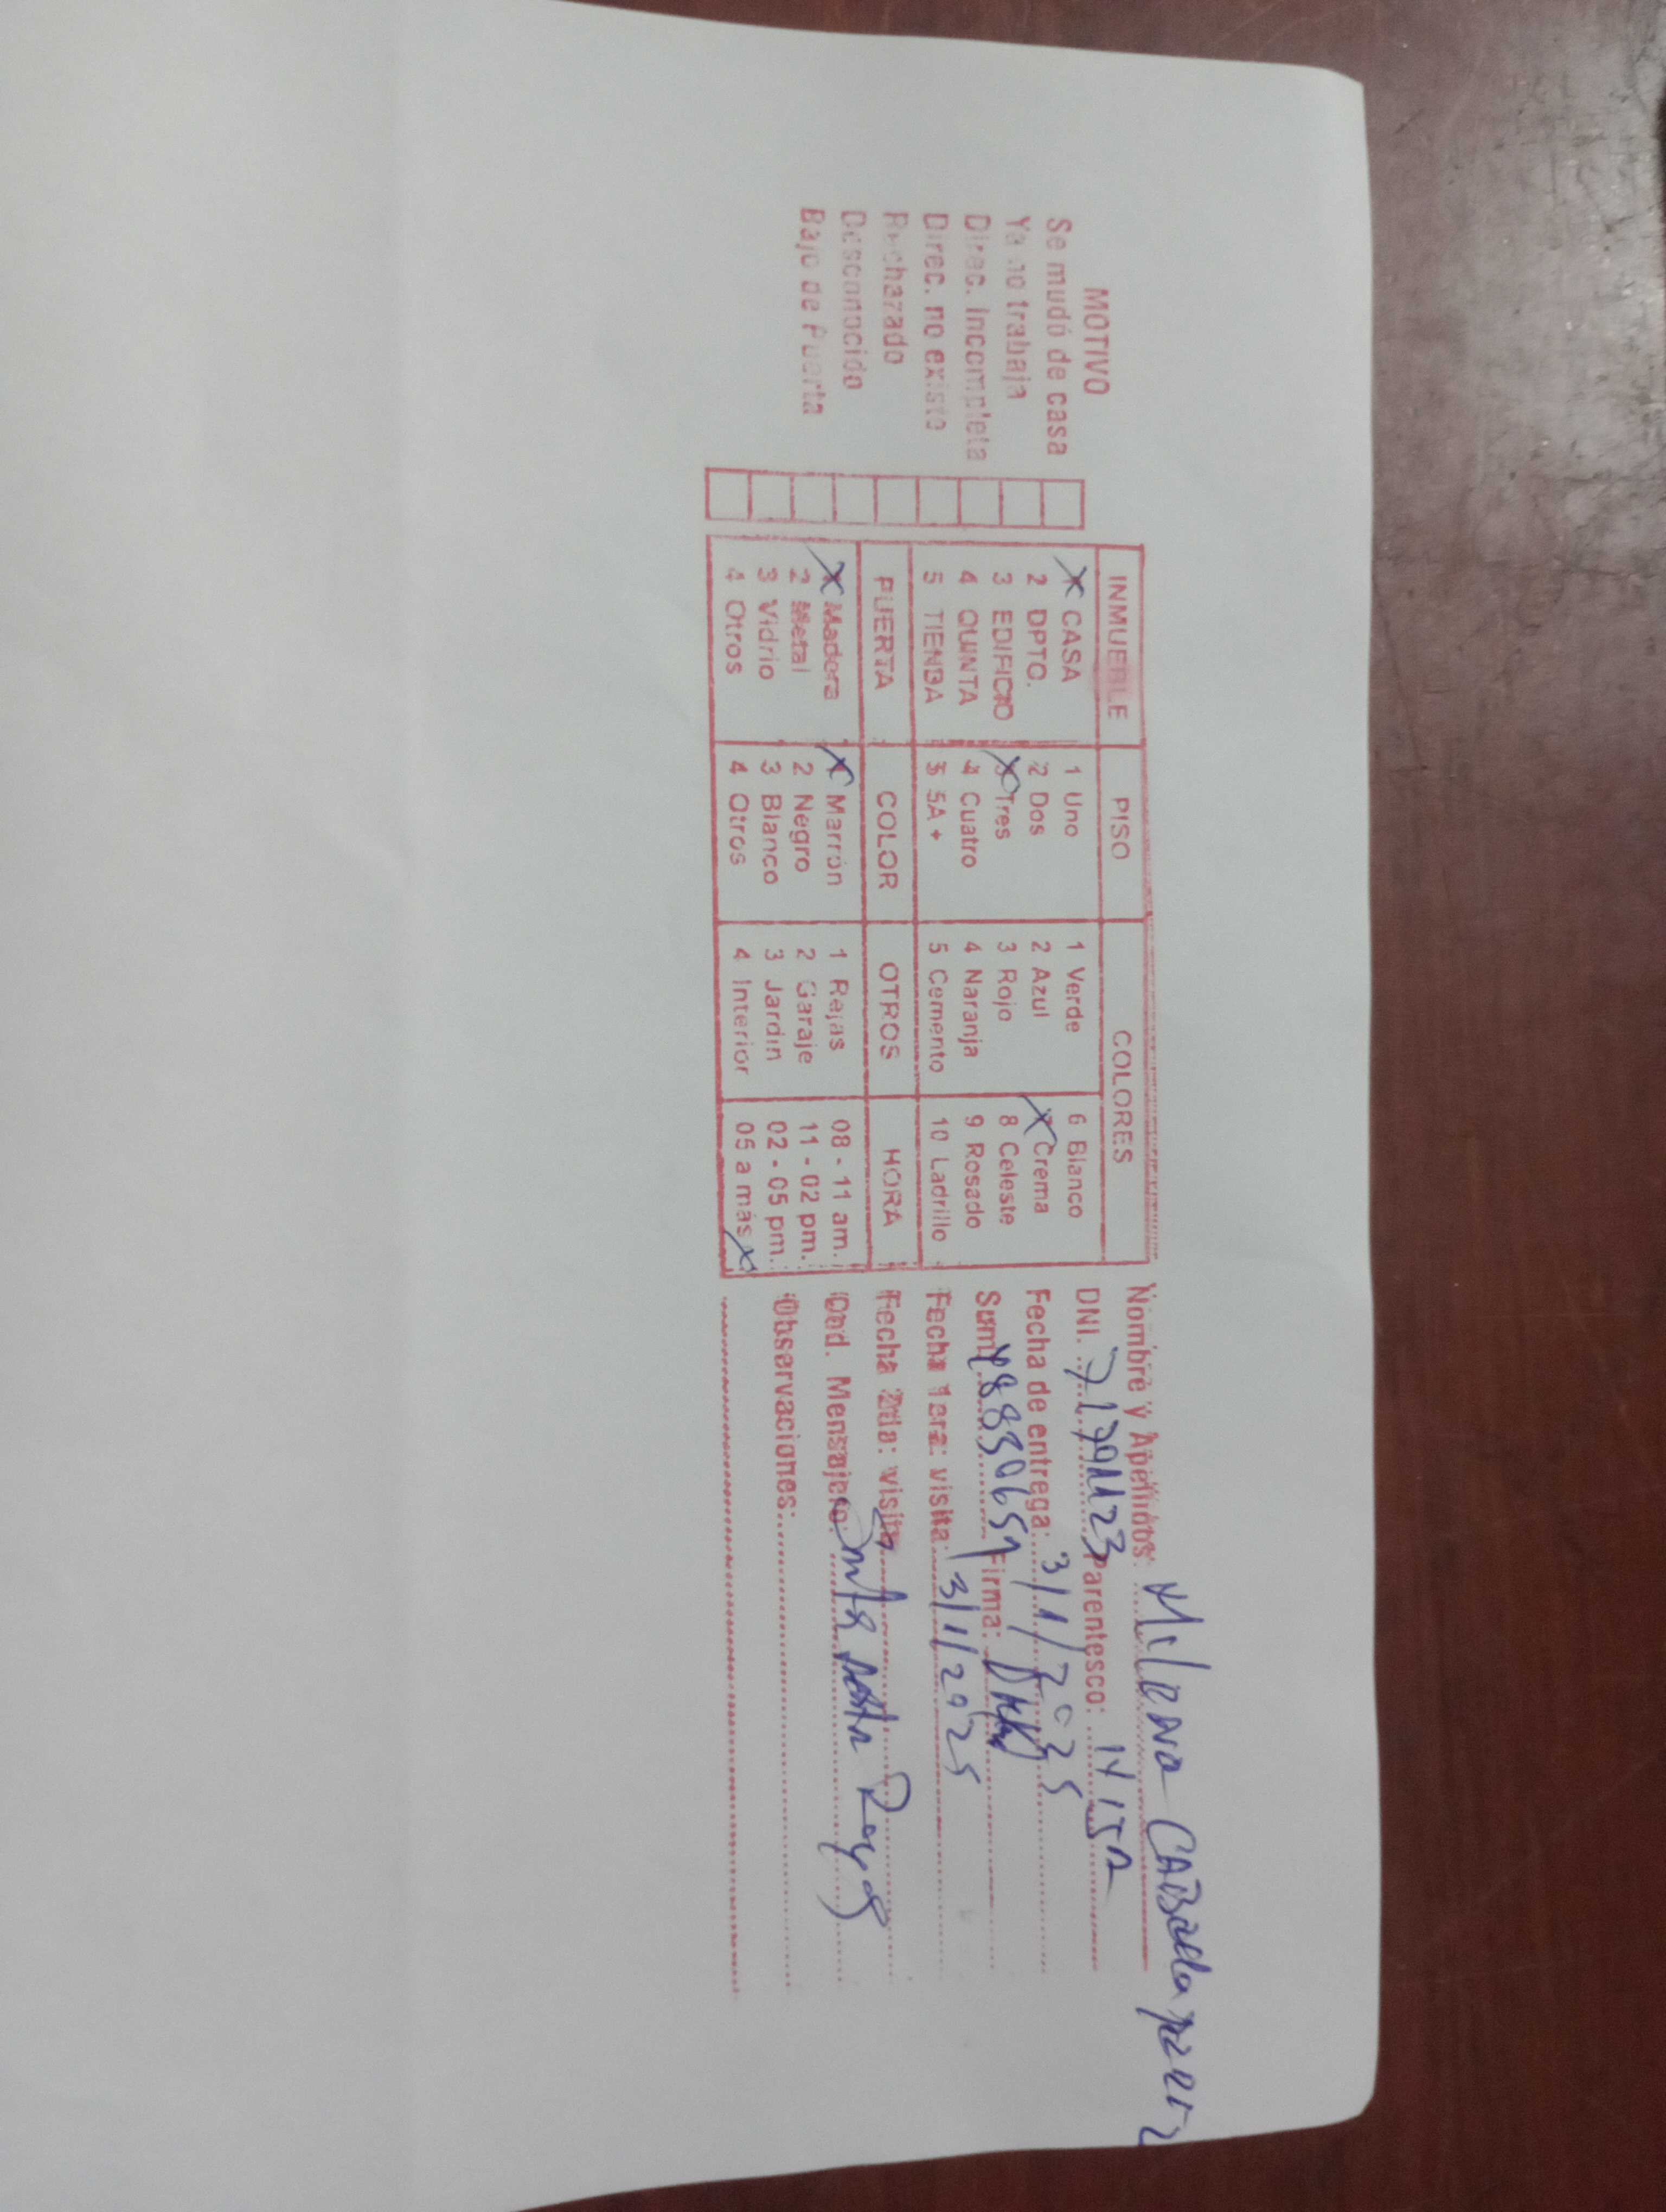 MOTIVO
Se mudó de casa
Ya no trabaja
Direc. Incompleta
Direc. no existe
Rechazado
Desconocido
Bajo de Puerta
INMUEBLE PISO COLORES
CASA 1 Uno 1 Verde 6 Blanco
2 DPTO. 2 Dos 2 Azul Crema
3 EDIFICIO Tres 3 Rojo 8 Celeste
4 QUINTA 4 Cuatro 4 Naranja 9 Rosado
5 TIENDA 5 5A + 5 Cemento 10 Ladrillo
PUERTA COLOR OTROS HORA
Madera Marrón 1 Rejas 08 - 11 am.
2 Metal 2 Negro 2 Garaje 11 - 02 pm.
3 Vidrio 3 Blanco 3 Jardin 02 - 05 pm.
4 Otros 4 Otros 4 Interior 05 a más
Nombre y Apellidos: Milena
DNI. Parentesco:
Fecha de entrega: 3/1/2025
Sum. Firma:
Fecha 1era: visita: 3/1/2025
Fecha 2da: visita
Cod. Mensajero:
Observaciones: